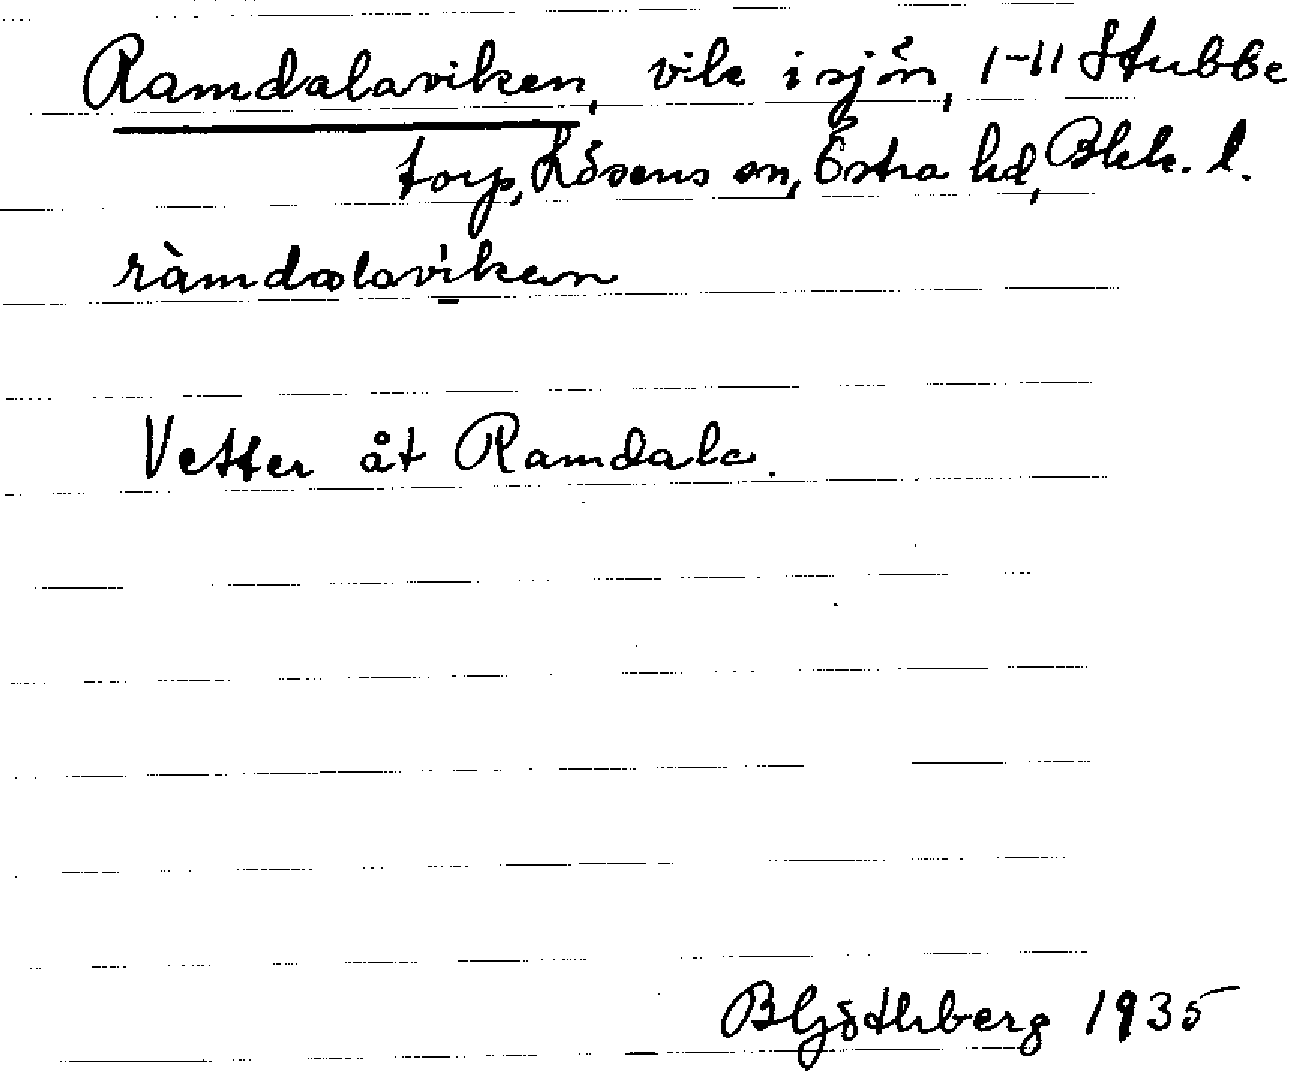 Ramdalaviken, vik i sjön, 1-11 Stubbe
torp, Lösens sn, Östra hd, Blek. l.
ràmdalavíken
Vetter åt Ramdala.
B Göthberg 1935